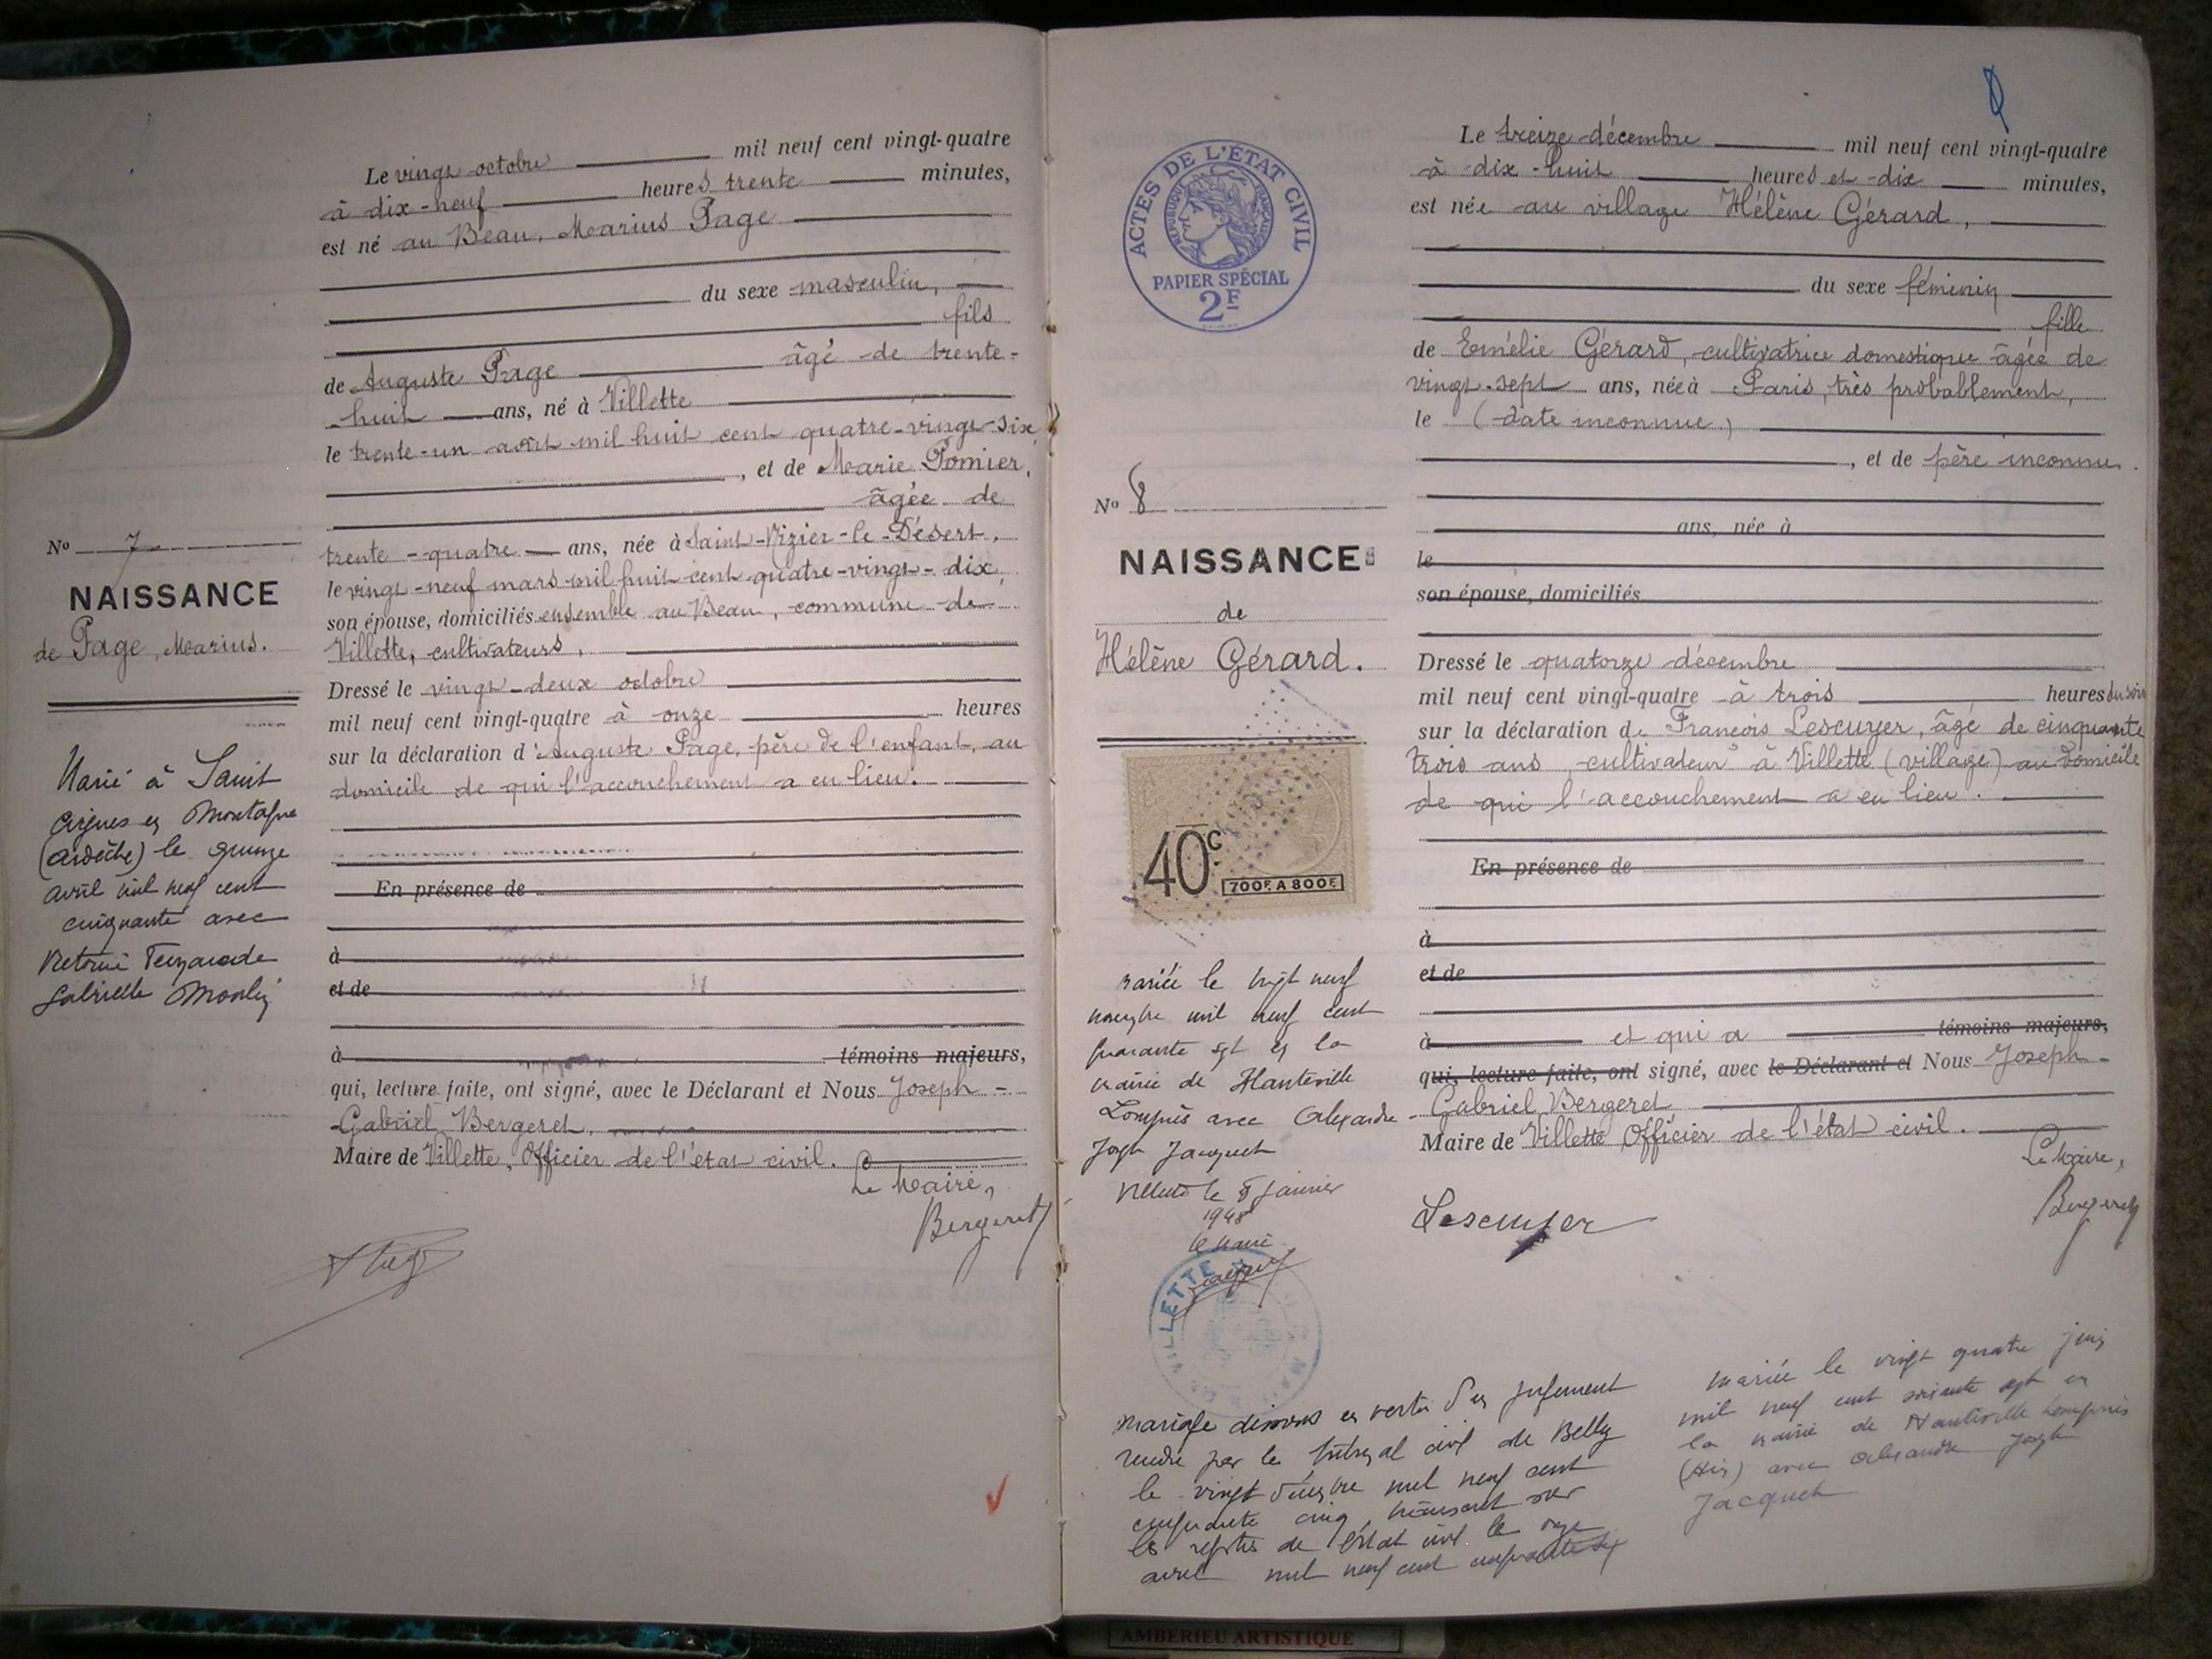 Le vingt octobre mil neuf cent vingt-quatre
à dix-neuf heures trente minutes,
est né au Beau, Marius Page
du sexe masculin,
fils
de Auguste Page âgé de trente-
huit ans, né à Villette
le trente-un août mil huit cent quatre-vingt-six
, et de Marie Pomier,
âgée de
trente-quatre ans, née à Saint-Vizier-le-Désert,
le vingt-neuf mars mil huit cent quatre-vingt-dix,
son épouse, domiciliés ensemble au Beau, commune de
Villette, cultivateurs,
Dressé le vingt-deux octobre
mil neuf cent vingt-quatre à onze heures
sur la déclaration d'Auguste Page, père de l'enfant, au
domicile de qui l'accouchement a eu lieu.
En présence de
à
et de
à témoins majeurs,
qui, lecture faite, ont signé, avec le Déclarant et Nous Joseph-
Gabriel Bergeret,
Maire de Villette, Officier de l'état civil.
Le Maire,
Bergeret
No 7
NAISSANCE
de Page, Marius.
Marié à Saint
en Montagne
(Ardèche) le quinze
avril mil neuf cent
cinquante avec
Gabrielle
ACTES DE L'ÉTAT CIVIL
RÉPUBLIQUE FRANÇAISE
PAPIER SPÉCIAL
2F
No 8
NAISSANCE
de
Hélène Gérard.
40c
700F. A 800F.
mariée le vingt neuf
novembre mil neuf cent
quarante sept en la
mairie de Hauteville
Lompnès avec Alexandre
Joseph Jacquet
Villette le 8 janvier
1948
le Maire
VILLETTE
Le treize décembre mil neuf cent vingt-quatre
à dix-huit heures et dix minutes,
est née au village Hélène Gérard,
du sexe féminin
fille
de Emélie Gérard, cultivatrice domestique âgée de
vingt-sept ans, née à Paris, très probablement,
le (date inconnue)
, et de père inconnu.
ans, née à
le
son épouse, domiciliés
Dressé le quatorze décembre
mil neuf cent vingt-quatre à trois heures du soir
sur la déclaration de François Lescuyer, âgé de cinquante
trois ans, cultivateur à Villette (village) au domicile
de qui l'accouchement a eu lieu.
En présence de
à
et de
à et qui a témoins majeurs,
qui, lecture faite, ont signé, avec le Déclarant et Nous Joseph-
Gabriel Bergeret
Maire de Villette Officier de l'état civil.
Le Maire,
Lescuyer
Bergeret
mariage dissous en vertu d'un jugement
rendu par le tribunal civil de Belley
le vingt décembre mil neuf cent
cinquante cinq, transcrit sur
les registres de l'état civil le onze
avril mil neuf cent cinquante six
mariée le vingt quatre juin
mil neuf cent soixante sept en
la mairie de Hauteville Lompnès
(Ain) avec Alexandre Joseph
Jacquet
AMBERIEU ARTISTIQUE